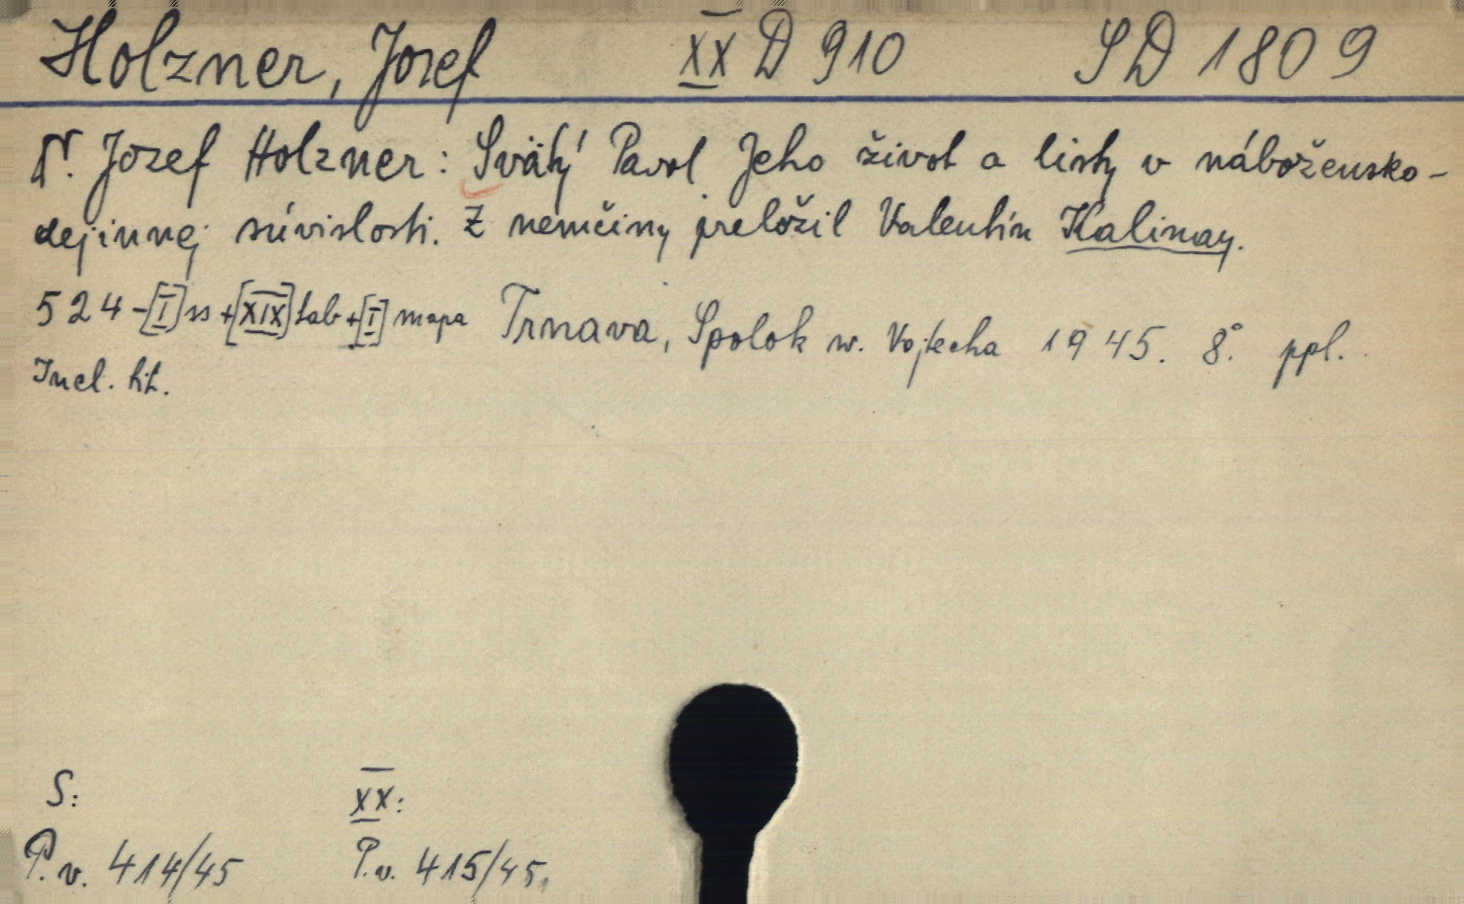 Holzner, Jozef XX D 910 SD 1809
Dr. Jozef Holzner: Svätý Pavol Jeho život a listy v nábožensko-
dejinnej súvislosti. Z nemčiny preložil Valentín Kalinay.
524-[I] ss +[XIX] tab +[I] mapa Trnava, Spolok sv. Vojtecha 1945. 8°. ppl.
Incl. tit.
S: XX:
P. v. 414/45 P. v. 415/45.